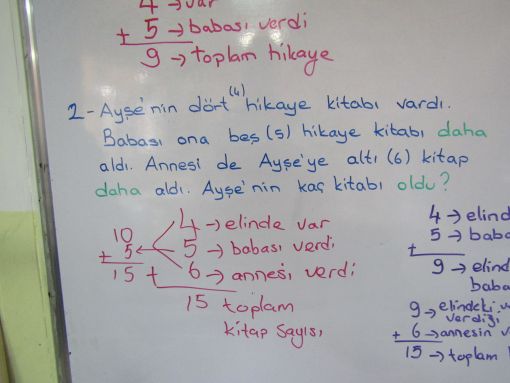 4 → var
+ 5 → babası verdi
9 → toplam hikaye
2- Ayşe'nin dört (4) hikaye kitabı vardı.
Babası ona beş (5) hikaye kitabı daha
aldı. Annesi de Ayşe'ye altı (6) kitap
daha aldı. Ayşe'nin kaç kitabı oldu?
4 → elinde var
5 → babası verdi
+ 6 → annesi verdi
15 toplam
kitap sayısı
10
+ 5
15
4 → elind
+ 5 → baba
9 → elind
baba
9 → elindeki v
verdiği
+ 6 → annesin v
15 → toplam